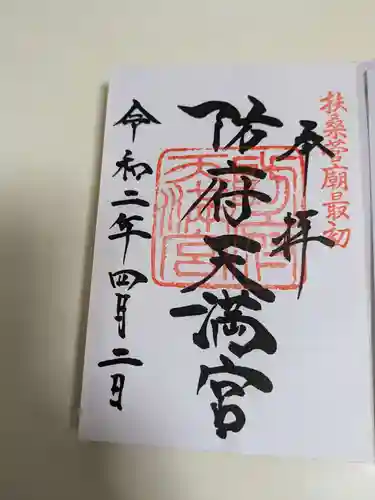 扶桑菅廟最初
奉拝
防府天満宮
令和二年四月二日